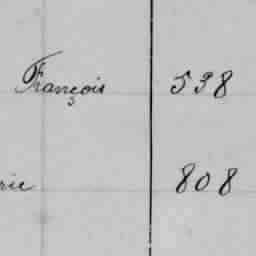 François 538
rie 808